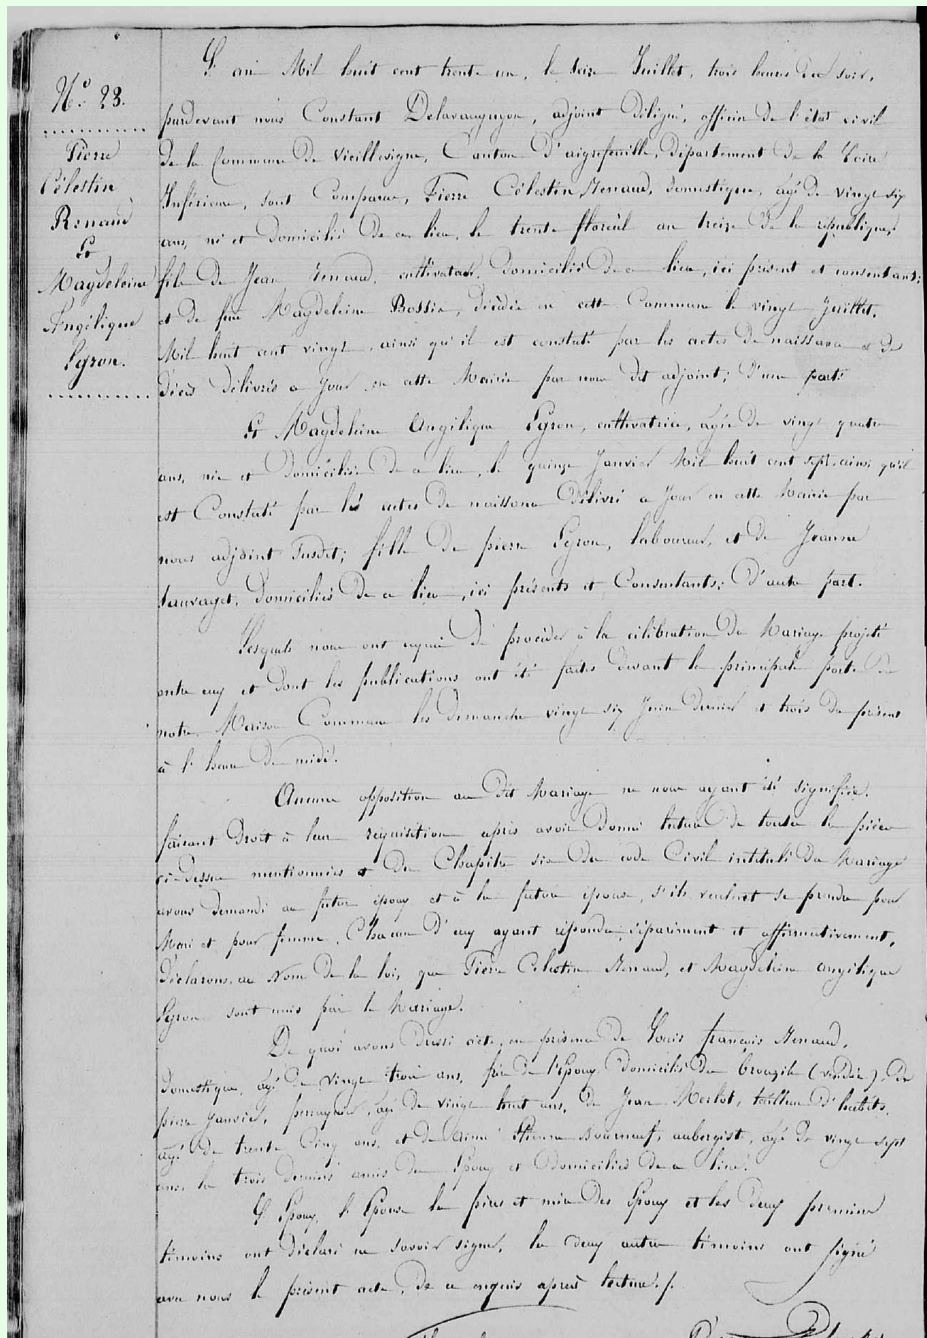 N.º 23.
Pierre
Célestin
Renaud
Et
Magdeleine
Angélique
Pyron.
L'an Mil huit cent trente un, le seize Juillet, trois heures du soir,
pardevant nous Constant Delavauguyon, adjoint délégué, officier de l'état civil
de la Commune de Vieillevigne, Canton d'aigrefeuille, département de la Loire
Inférieure, sont Comparus, Pierre Célestin Renaud, domestique, âgé de vingt six
ans, né et domicilié de ce lieu, le trente floréal an treize de la république,
fils de Jean Renaud, cultivateur, domicilié de ce lieu, ici présent et consentant;
et de feue Magdeleine Bossis, décédée en cette Commune le vingt Juillet,
Mil huit cent vingt, ainsi qu'il est constaté par les actes de naissance et de
décès délivrés ce Jour en cette Mairie par nous dit adjoint; d'une part.
Et Magdeleine Angélique Pyron, cultivatrice, âgée de vingt quatre
ans, née et domiciliée de ce lieu, le quinze Janvier Mil huit cent sept, ainsi qu'il
est Constaté par les actes de naissance délivré ce Jour en cette Mairie par
nous adjoint susdit; fille de pierre Pyron, laboureur, et de Jeanne
Sauvaget, domiciliés de ce lieu, ici présents et Consentants; d'autre part.
Lesquels nous ont requis de procéder à la célébration du Mariage projeté
entre eux et dont les publications ont été faites devant la principale porte de
notre Maison Commune les dimanches vingt six Juin dernier et trois du présent
à l'heure de midi.
Aucune opposition au dit Mariage ne nous ayant été signifiée,
faisant droit à leur réquisition après avoir donné lecture de toutes les pièces
ci-dessus mentionnées et du Chapitre six du code Civil intitulé du Mariage
avons demandé au futur époux et à la future épouse, s'ils veulent se prendre pour
Mari et pour femme, Chacun d'eux ayant répondu séparément et affirmativement,
déclarons, au Nom de la loi, que Pierre Célestin Renaud, et Magdeleine angélique
Pyron sont unis par le Mariage.
De quoi avons dressé acte, en présence de Louis françois Renaud,
domestique, âgé de vingt trois ans, frère de l'Epoux domicilié du brouzils (vendée), de
pierre Janvier, âgé de vingt huit ans, de Jean Merlet, tailleur d'habits,
âgé de trente Cinq ans, et de aimé Etienne aubergiste, âgé de vingt sept
ans, les trois derniers amis des Epoux et Domiciliés de ce lieu.
L'Epoux, l'Epouse les pères et mère des Epoux et les deux premiers
témoins ont déclaré ne savoir signer, les deux autres témoins ont signé
avec nous le présent acte, de ce enquis après lecture./.